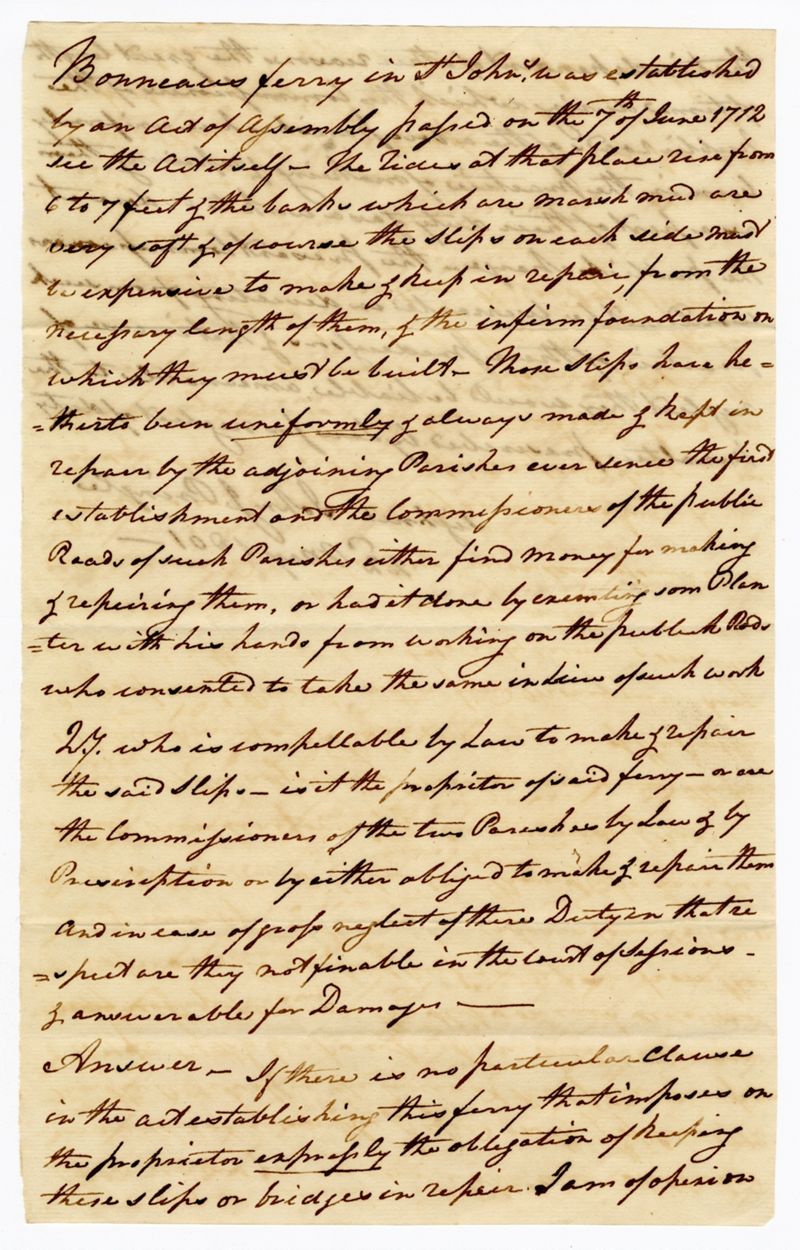 Bonneaus ferry in St Johns, was established
by an Act of Assembly passed on the 7th of June 1712
see the Act itself – The Tides at that place rise from
6 to 7 feet & the banks which are marsh mud are
very soft & of course the slips on each side must
be expensive to make & keep in repair, from the
necessary length of them, & the infirm foundation on
which they must be built – Those Slips have he=
=therto been uniformly & always made & kept in
repair by the adjoining Parishes ever sence the first
establishment and the Commissioners of the public
Roads of such Parishes either find money for making
& repairing them, or had it done by exemting som Plan
=ter with his hands from working on the publick Rods
who consented to take the same in Lieu of such work
Qy. who is compellable by Law to make & repair
the said Slips – is it the propritor of said ferry – or are
the Commissioners of the two Parishes by Law & by
Prescription or by either obliged to make & repair them
And in case of gross neglect of there Duty in that re
=spect are they not finable in the Court of Sessions –
& answerable for Damages —
Answer – If there is no particular Clause
in the act establishing this ferry that imposes on
the proprietor expressly the obligation of keeping
these slips or bridges in repair. I am of opinion